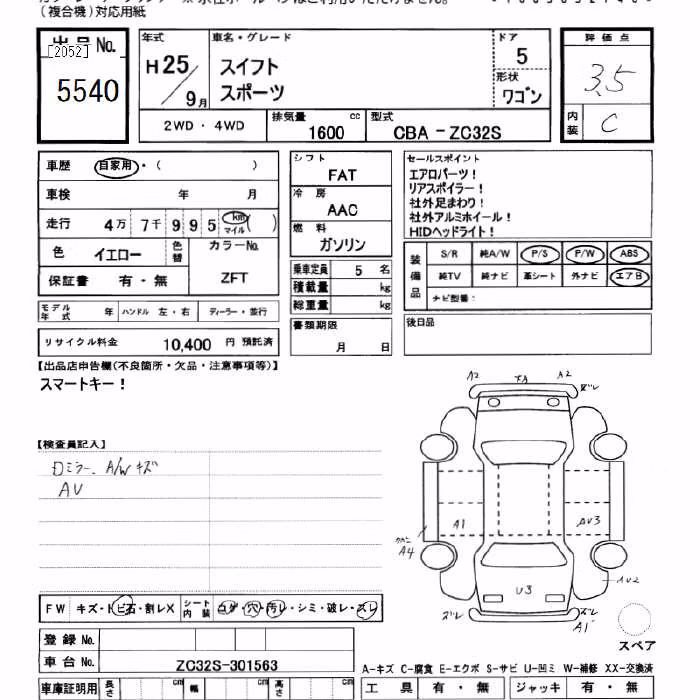 (複合機)対応用紙
出品No.
[2052]
5540
年式
H25/9月
車名・グレード
スイフト
スポーツ
ドア
5
形状
ワゴン
2WD・4WD
排気量
1600 cc
型式
CBA-ZC32S
評価点
3.5
内装
C
車歴 自家用・( )
車検 年 月
走行 4万 7千 9 9 5 km マイル ( )
色 イエロー 色替 カラーNo.
ZFT
保証書 有・無
モデル年式 年 ハンドル 左・右 ディーラー・並行
リサイクル料金 10,400 円 預託済
シフト
FAT
冷房
AAC
燃料
ガソリン
乗車定員 5 名
積載量 kg
総重量 kg
書類期限
月 日
セールスポイント
エアロパーツ!
リアスポイラー!
社外足まわり!
社外アルミホイール!
HIDヘッドライト!
装備品
S/R 純A/W P/S P/W ABS
純TV 純ナビ 革シート 外ナビ エアB
ナビ型番:
後日品
【出品店申告欄(不良箇所・欠品・注意事項等)】
スマートキー!
【検査員記入】
ミラー、A/Wキズ
AV
A2
A2
A1
AV3
A4
U3
AU2
ズレ
ズレ
A1
スペア
FW キズ・トビ石・割レX シート内装 コゲ・穴・汚レ・シミ・破レ・スレ
登録No.
車台No. ZC32S-301563
車庫証明用 長さ cm 幅 cm 高さ cm
A-キズ C-腐食 E-エクボ S-サビ U-凹ミ W-補修 XX-交換済
工具 有・無 ジャッキ 有・無